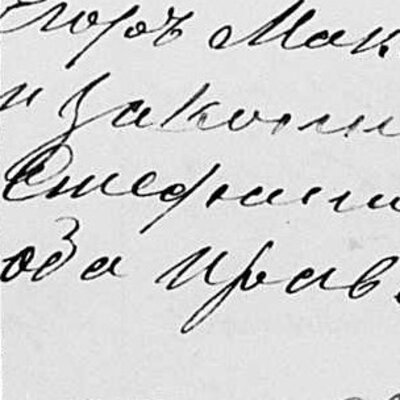 Егоръ Мак
и Закон
Стефани
ова прав.